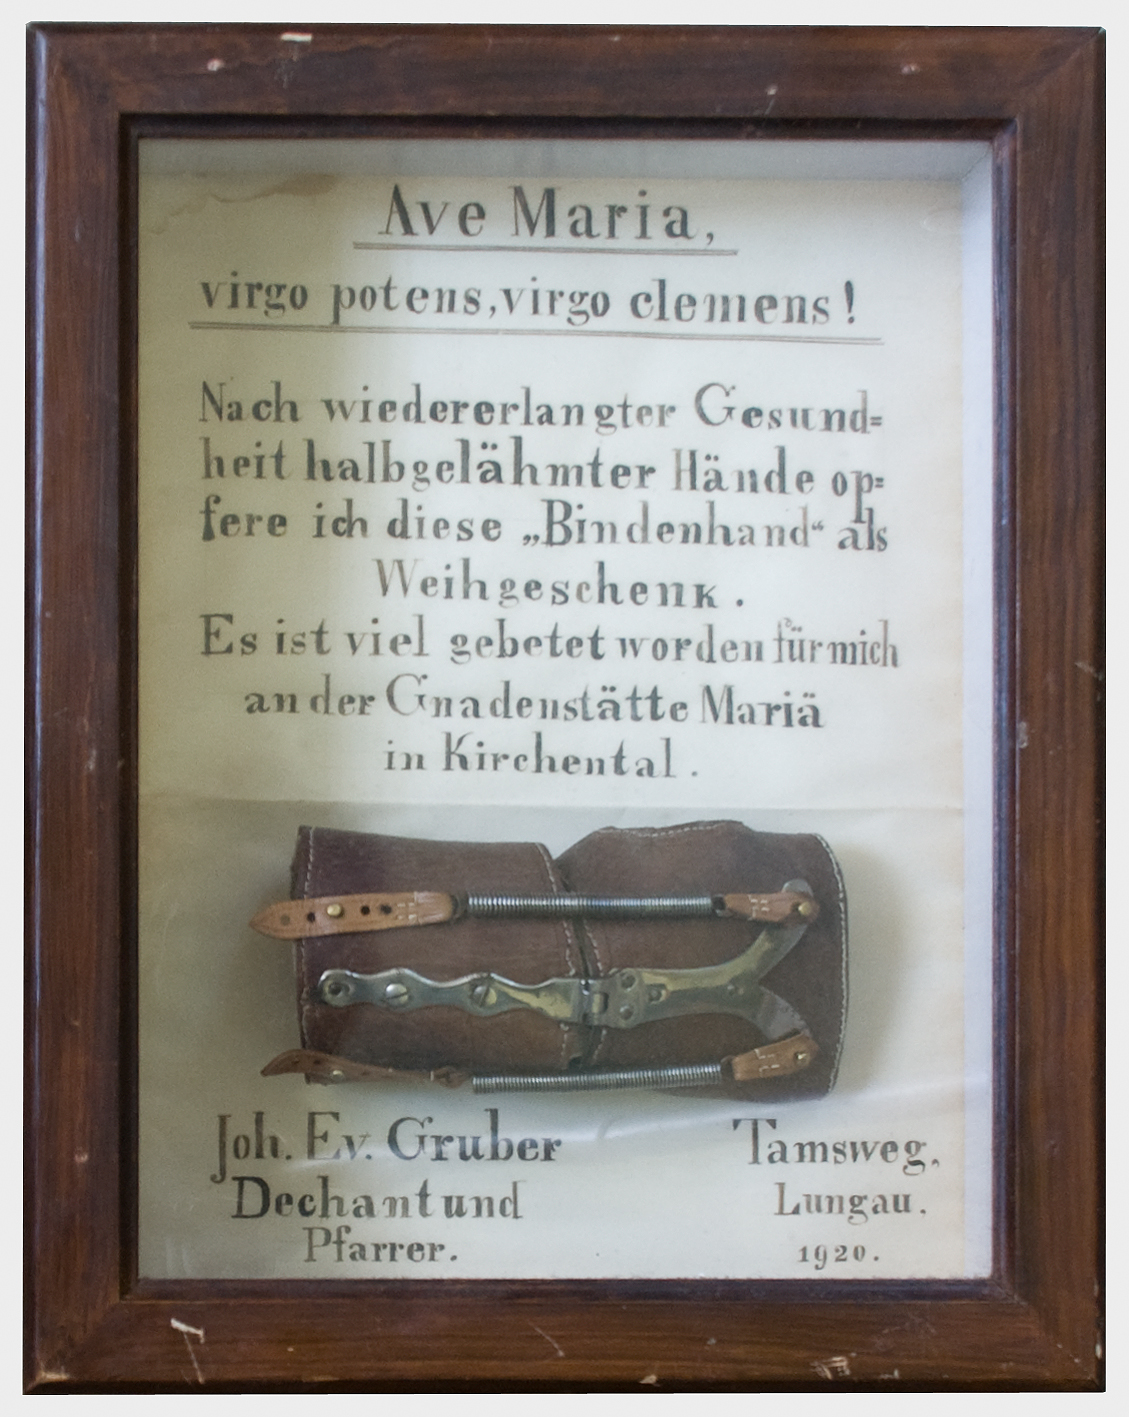 Ave Maria,
virgo potens, virgo clemens!
Nach wiedererlangter Gesund=
heit halbgelähmter Hände op=
fere ich diese „Bindenhand“ als
Weihgeschenk.
Es ist viel gebetet worden für mich
an der Gnadenstätte Mariä
in Kirchental.
Joh. Ev. Gruber
Dechant und
Pfarrer.
Tamsweg,
Lungau.
1920.